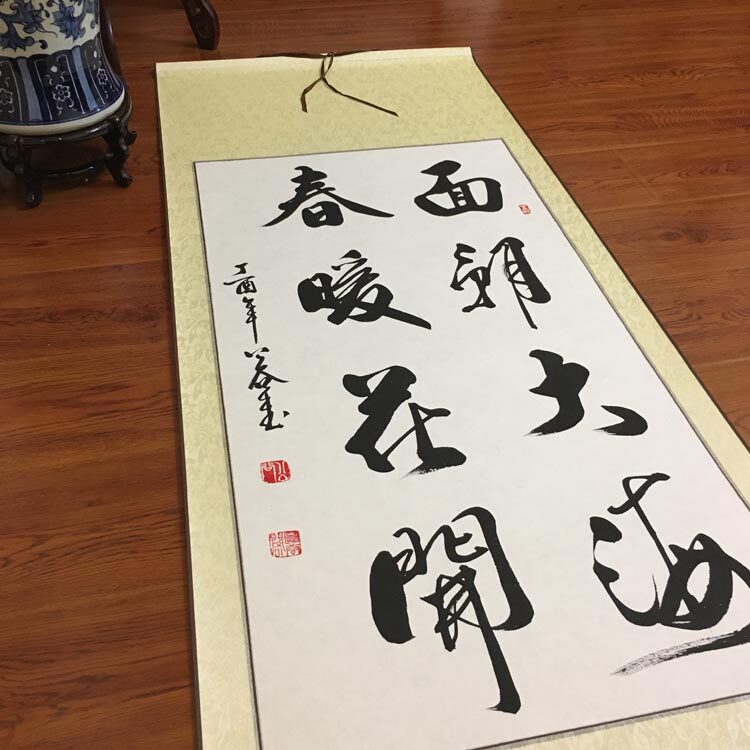 面朝大海
春暖花開
丁酉年